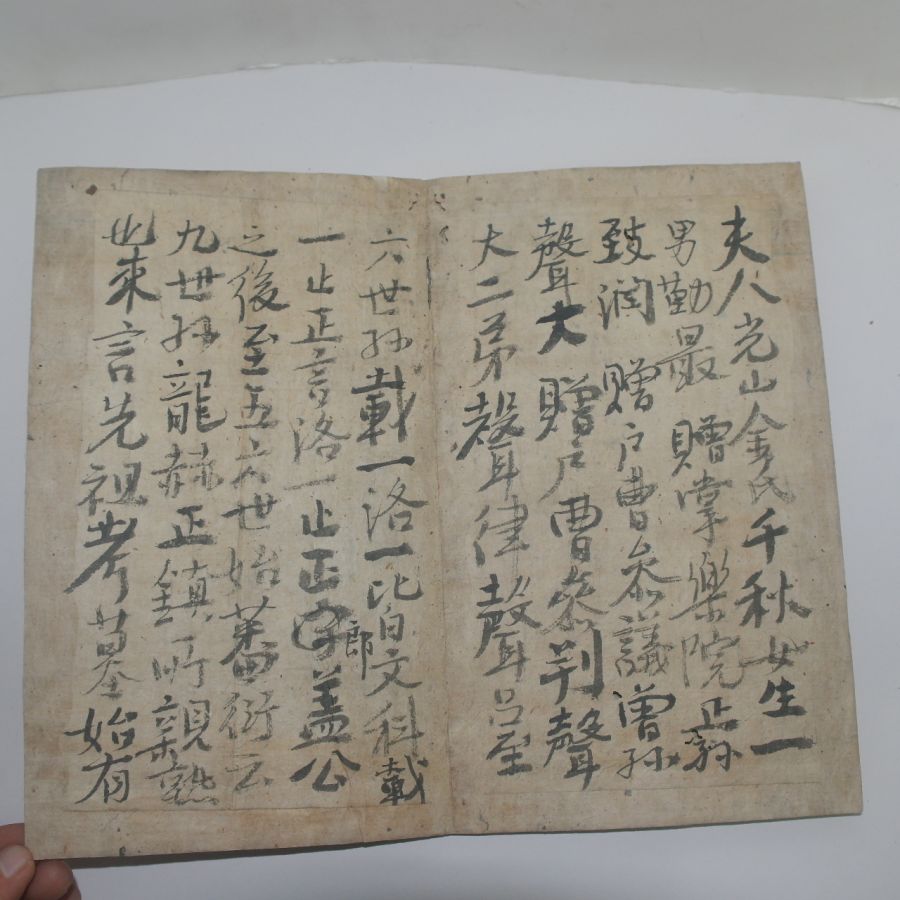 夫人光山金氏千秋女生一
男勤最 贈掌樂院正孫
致潤 贈戶曹參議曾孫
聲大 贈戶曹參判聲
大二弟聲律聲呂至
六世孫載一洛一比自文科載
一止正言洛一止正郎盖公
之後至五六世始蕃衍云
九世孫龍赫正鎮所親熟
也來言先祖考墓始有